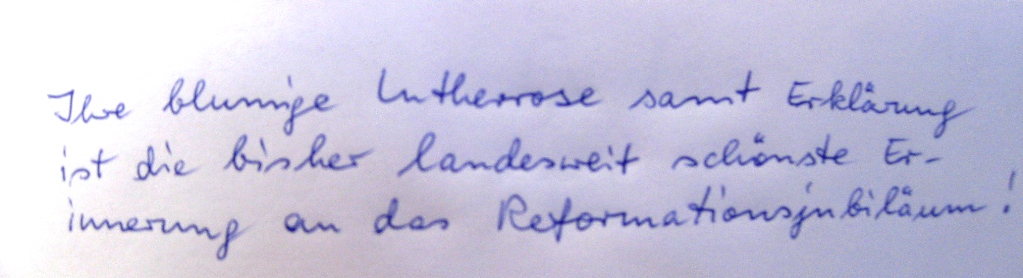 Ihre blumige Lutherrose samt Erklärung
ist die bisher landesweit schönste Er-
innerung an das Reformationsjubiläum!